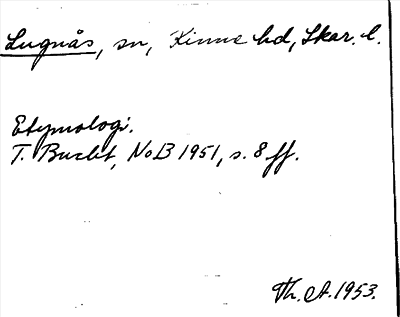 Lugnås, sn, Kinne hd, Skar. l.
Etymologi.
T. Bucht, NoB 1951, s. 8 ff.
Th. A. 1953.